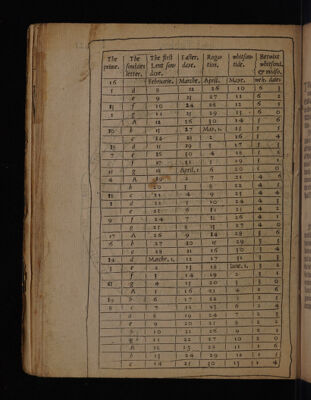 The prime. The sondaies letter. The first Lent sondaye. Easter daye. Rogation. whitsontide. Betwixt whitsont. & midso.
16 Februarie. Marche. April. Maye. wek. daies
5 d 8 22 26 10 6 3
e 9 23 27 11 6 2
13 f 10 24 28 12 6 1
2 g 11 25 29 13 6 0
A 12 26 30 14 5 6
10 b 13 27 Mai.1. 15 5 5
c 14 28 2 16 5 4
18 d 15 29 3 17 5 3
7 e 16 30 4 18 5 2
f 17 31 5 19 5 1
15 g 18 April.1 6 20 5 0
4 A 19 2 7 21 4 6
b 20 3 8 22 4 5
12 c 21 4 9 23 4 4
1 d 22 5 10 24 4 3
e 23 6 11 25 4 2
9 f 24 7 12 26 4 1
g 25 8 13 27 4 0
17 A 26 9 14 28 3 6
6 b 27 10 15 29 3 5
c 28 11 16 30 3 4
14 d Marche.1. 12 17 31 3 3
3 e 2 13 18 Iune.1. 3 2
f 3 14 19 2 3 1
11 g 4 15 20 3 3 0
A 5 16 21 4 2 6
19 b 6 17 22 5 2 5
8 c 7 18 23 6 2 4
d 8 19 24 7 2 3
e 9 20 25 8 2 2
f 10 21 26 9 2 1
g 11 22 27 10 2 0
A 12 23 28 11 1 6
b 13 24 29 12 1 5
c 14 25 30 13 1 4